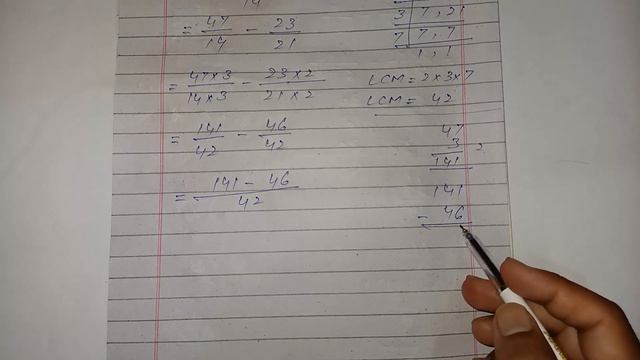 14
= 47/14 - 23/21
= 47×3/14×3 - 23×2/21×2
= 141/42 - 46/42
= 141 - 46/42
3 | 7, 21
7 | 7, 7
1, 1
LCM = 2×3×7
LCM = 42
47
3
141
141
- 46